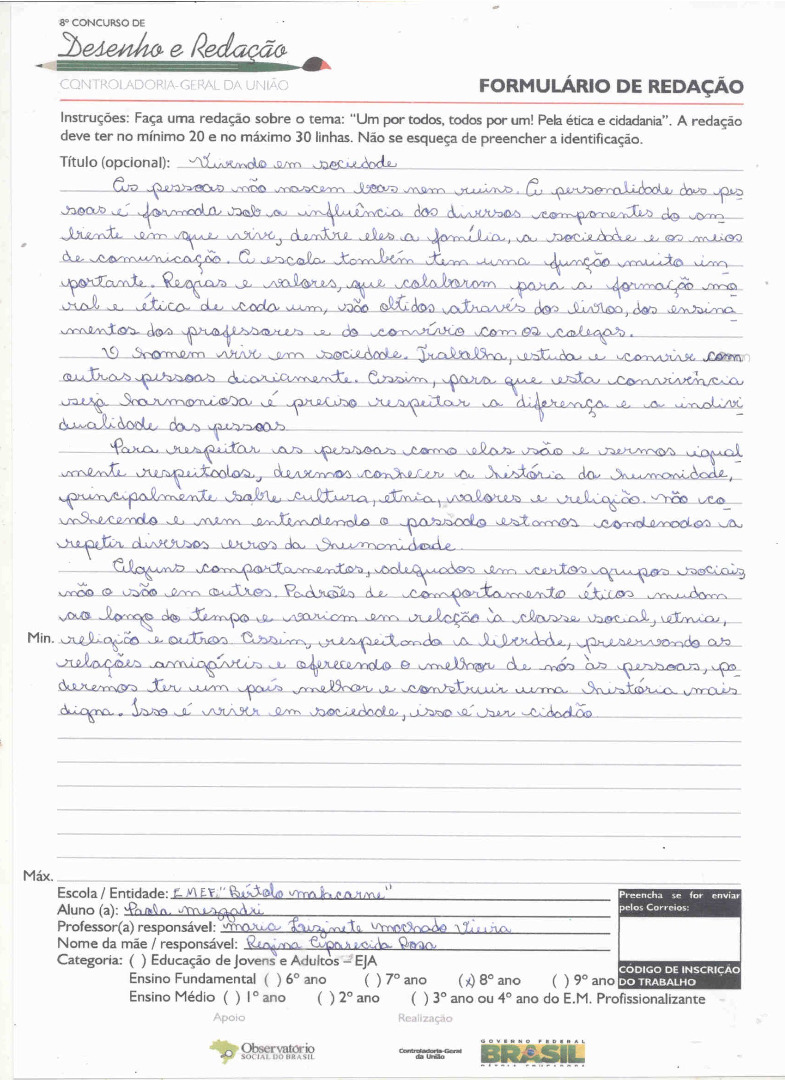 8º CONCURSO DE
Desenho e Redação
CONTROLADORIA-GERAL DA UNIÃO
FORMULÁRIO DE REDAÇÃO
Instruções: Faça uma redação sobre o tema: “Um por todos, todos por um! Pela ética e cidadania”. A redação
deve ter no mínimo 20 e no máximo 30 linhas. Não se esqueça de preencher a identificação.
Título (opcional): Vivendo em sociedade
As pessoas não nascem boas nem ruins. A personalidade das pes
soas é formada sob a influência dos diversos componentes do am
biente em que vive, dentre eles a família, a sociedade e os meios
de comunicação. A escola também tem uma função muito im
portante. Regras e valores, que colaboram para a formação mo
ral e ética de cada um, são obtidos através dos livros, dos ensina
mentos dos professores e do convívio com os colegas.
O homem vive em sociedade. Trabalha, estuda e convive com
outras pessoas diariamente. Assim, para que esta convivência
seja harmoniosa é preciso respeitar a diferença e a indivi
dualidade das pessoas
Para respeitar as pessoas como elas são e sermos igual
mente respeitados, devemos conhecer a história da humanidade,
principalmente sobre cultura, etnia, valores e religião. não co
nhecendo e nem entendendo o passado estamos condenados a
repetir diversos erros da humanidade.
Alguns comportamentos, adequados em certos grupos sociais,
não o são em outros. Padrões de comportamento éticos mudam
ao longo do tempo e variam em relação à classe social, etnia,
Min. religião e outros Assim, respeitando a liberdade, preservando as
relações amigáveis e oferecendo o melhor de nós às pessoas, po
deremos ter um país melhor e construir uma história mais
digna. Isso é viver em sociedade, isso é ser cidadão
Máx.
Escola / Entidade: EMEF. "Bértolo malacarne"
Aluno (a): Paola mezadri
Professor(a) responsável: maria Luzinete machado Vieira
Nome da mãe / responsável: Regina Aparecida Rosa
Categoria: ( ) Educação de Jovens e Adultos – EJA
Ensino Fundamental ( ) 6º ano ( ) 7º ano (x) 8º ano ( ) 9º ano
Ensino Médio ( ) 1º ano ( ) 2º ano ( ) 3º ano ou 4º ano do E.M. Profissionalizante
Preencha se for enviar
pelos Correios:
CÓDIGO DE INSCRIÇÃO
DO TRABALHO
Apoio
Realização
Observatório
SOCIAL DO BRASIL
Controladoria-Geral
da União
GOVERNO FEDERAL
BRASIL